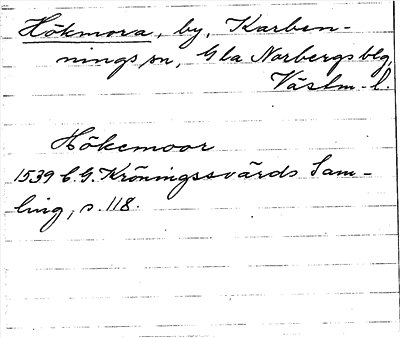 Hökmora, by, Karben-
nings sn, Gla Norbergs blg,
Västm. l.
Hökemoor
1539 C.G. Kröningssvärds Sam-
ling, s. 118.